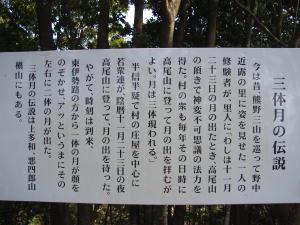 三体月の伝説
今は昔、熊野三山を巡って野中
近露の里に姿を見せた一人の
修験者が、里人に「わしは十一月
二十三日の月の出たとき、高尾山
の頂きで神変不可思議の法力を
得た。村の衆も毎年その日時に
高尾山に登って月の出を拝むが
よい。月は三体現われる。」
半信半疑で村の庄屋を中心に
若衆連が、陰暦十一月二十三日の夜
高尾山に登って、月の出を待った。
やがて、時刻は到来、
東伊勢路の方から一体の月が顔を
のぞかせ、アッというまにその
左右に二体の月が出た。
三体月の伝説は上多和、悪四郎山
槇山にもある。